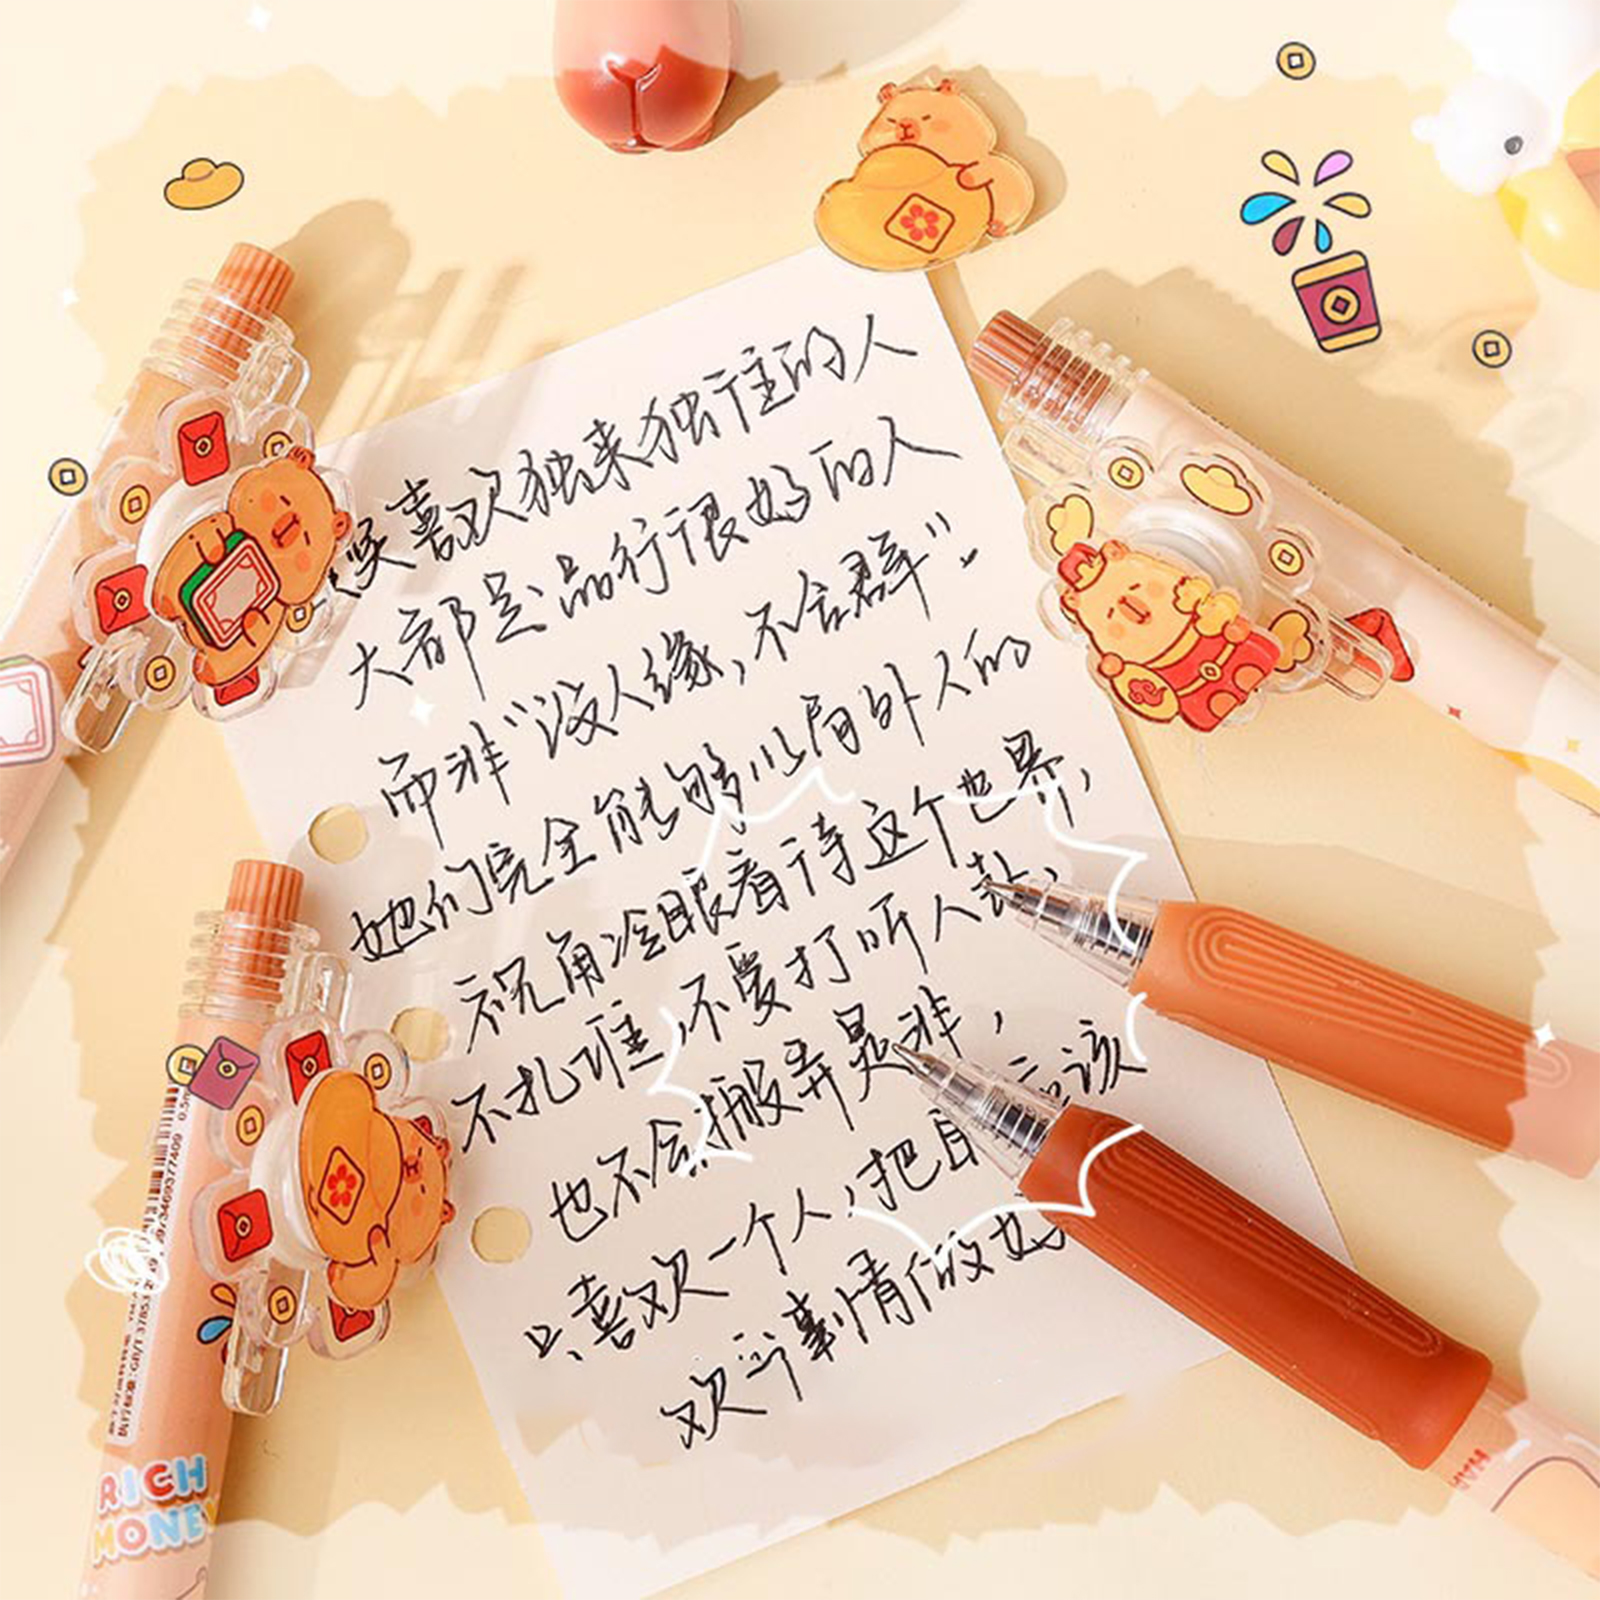 喜欢独来独往的人
大部是品行很好的人
而非“没人缘,不合群”。
她们完全能够以局外人的
视角冷眼看待这个世界,
不扎堆,不爱打听人
也不会搬弄是非,
只喜欢一个人,把自
应该
欢 事情做好
RICH
MONEY
0.5m
执行标准:GB/T 37853